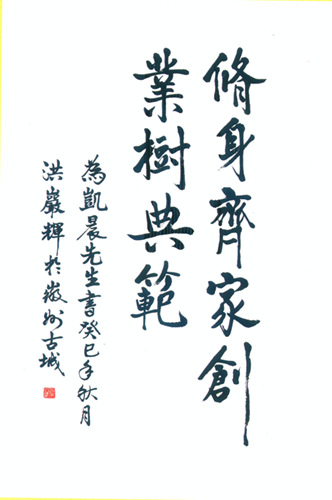 脩身齊家創
業樹典範
為凱晨先生書癸巳年秋月
洪巖輝於徽州古城